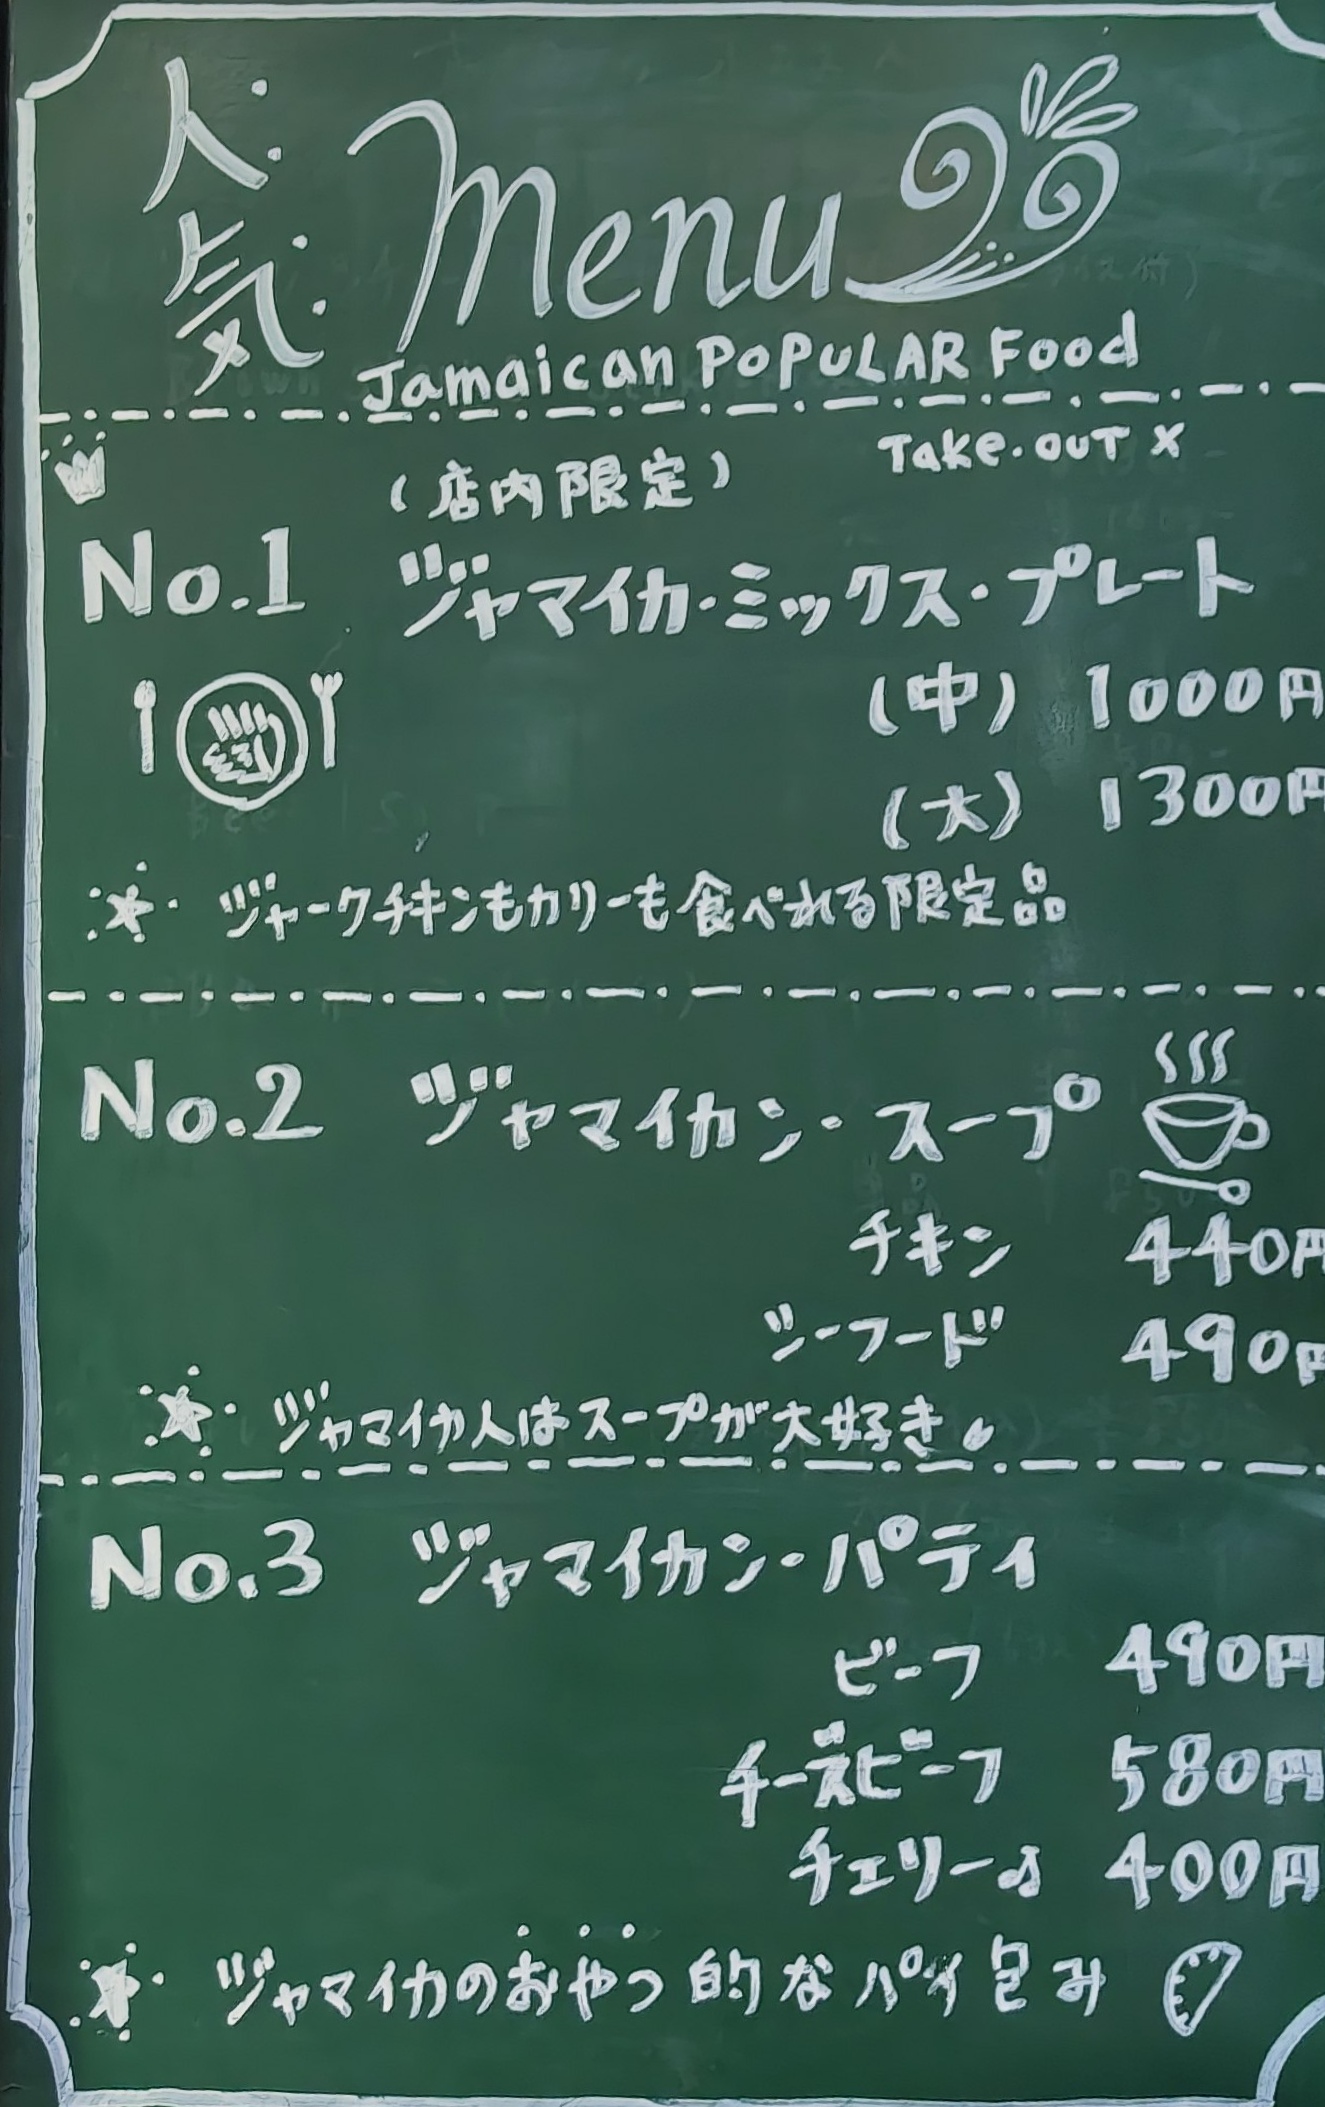 人気 Menu
Jamaican POPULAR Food
Take.out ×
(店内限定)
No.1 ジャマイカ・ミックス・プレート
(中) 1000円
(大) 1300円
ジャークチキンもカリーも食べれる限定品
No.2 ジャマイカン・スープ
チキン 440円
シーフード 490円
ジャマイカ人はスープが大好き。
No.3 ジャマイカン・パティ
ビーフ 490円
チーズビーフ 580円
チェリー♪ 400円
ジャマイカのおやつ的なパイ包み